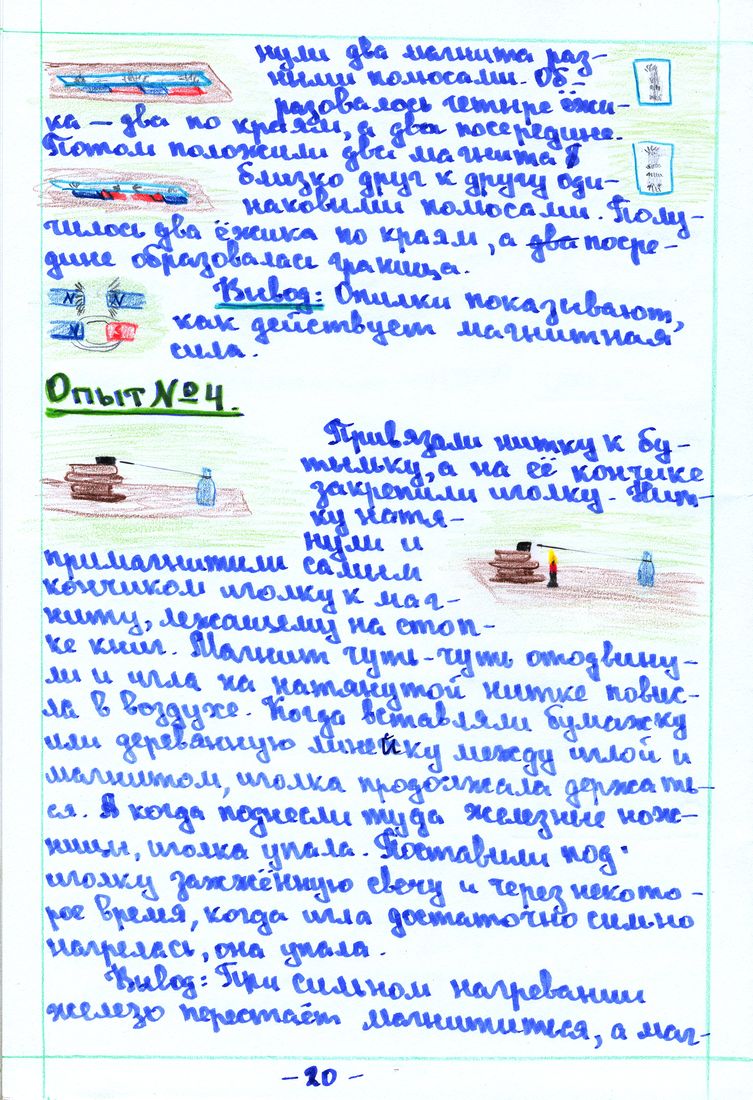 нули два магнита раз-
ными помосами. Об-
разовалось четыре ёжи-
ка – два по краям, а два посередине.
Потом положили два магнита
близко друг к другу оди-
наковыми помосами. Полу-
чилось два ёжика по краям, а два посре-
дине образовалась граница.
N N
N S
Вывод: Опилки показывают,
как действует магнитная
сила.
Опыт № 4.
Привязали нитку к бу-
тыльку, а на её кончике
закрепили иголку. Нит-
ку натя-
нули и
примагнитили самым
кончиком иголку к маг-
ниту, лежащему на стоп-
ке книг. Магнит чуть-чуть отодвину-
ли и игла на натянутой нитке повис-
ла в воздухе. Когда вставляли бумажку
или деревянную линейку между иглой и
магнитом, иголка продолжала держать-
ся. А когда поднесли туда железные нож-
ницы, иголка упала. Поставили под
иголку зажжённую свечу и через некото-
рое время, когда игла достаточно сильно
нагрелась, она упала.
Вывод: При сильном нагревании
железо перестаёт магнититься, а маг-
- 20 -